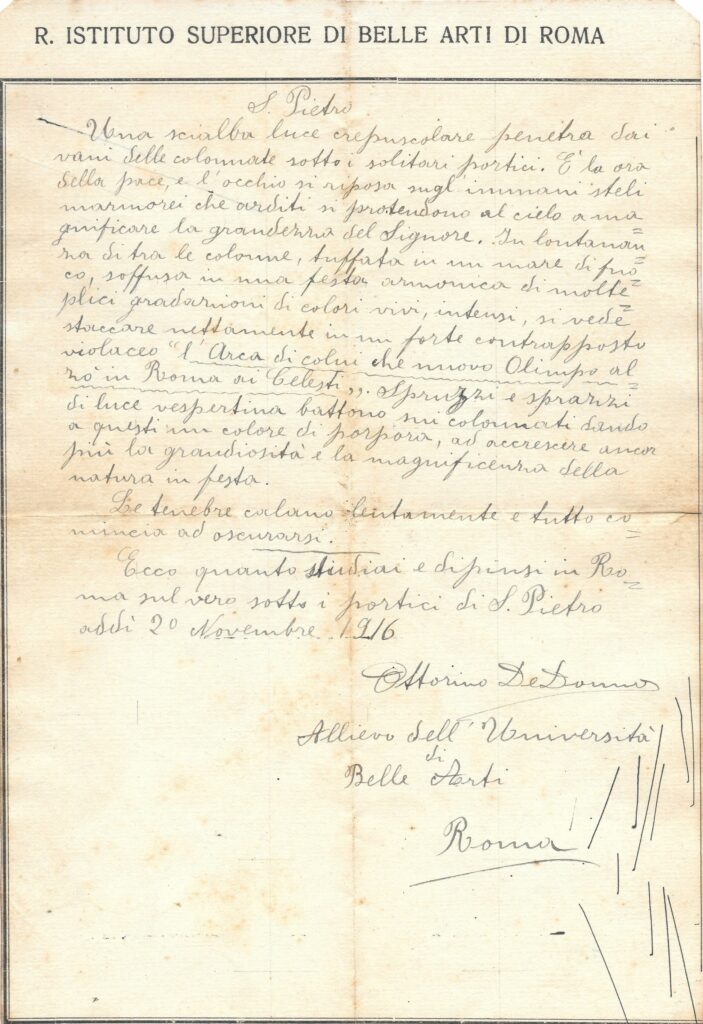 R. ISTITUTO SUPERIORE DI BELLE ARTI DI ROMA
S. Pietro
Una scialba luce crepuscolare penetra dai
vani delle colonnate sotto i solitari portici. È la ora
della pace, e l'occhio si riposa sugl'immani steli
marmorei che arditi si protendono al cielo a ma=
gnificare la grandezza del Signore. In lontanan=
za di tra le colonne, tuffata in un mare di fuo=
co, soffusa in una festa armonica di molte=
plici gradazioni di colori vivi, intensi, si vede
staccare nettamente in un forte contrapposto
violaceo "l'Arca di colui che nuovo Olimpo al
zò in Roma ai Celesti„. Spruzzi e sprazzi
di luce vespertina battono sui colonnati dando
a questi un colore di porpora, ad accrescere ancor
più la grandiosità e la magnificenza della
natura in festa.
Le tenebre calano lentamente e tutto co=
mincia ad oscurarsi.
Ecco quanto studiai e dipinsi in Ro=
ma sul vero sotto i portici di S. Pietro
addì 20 Novembre 1916
Ottorino De Donno
Allievo dell'Università
di
Belle Arti
Roma